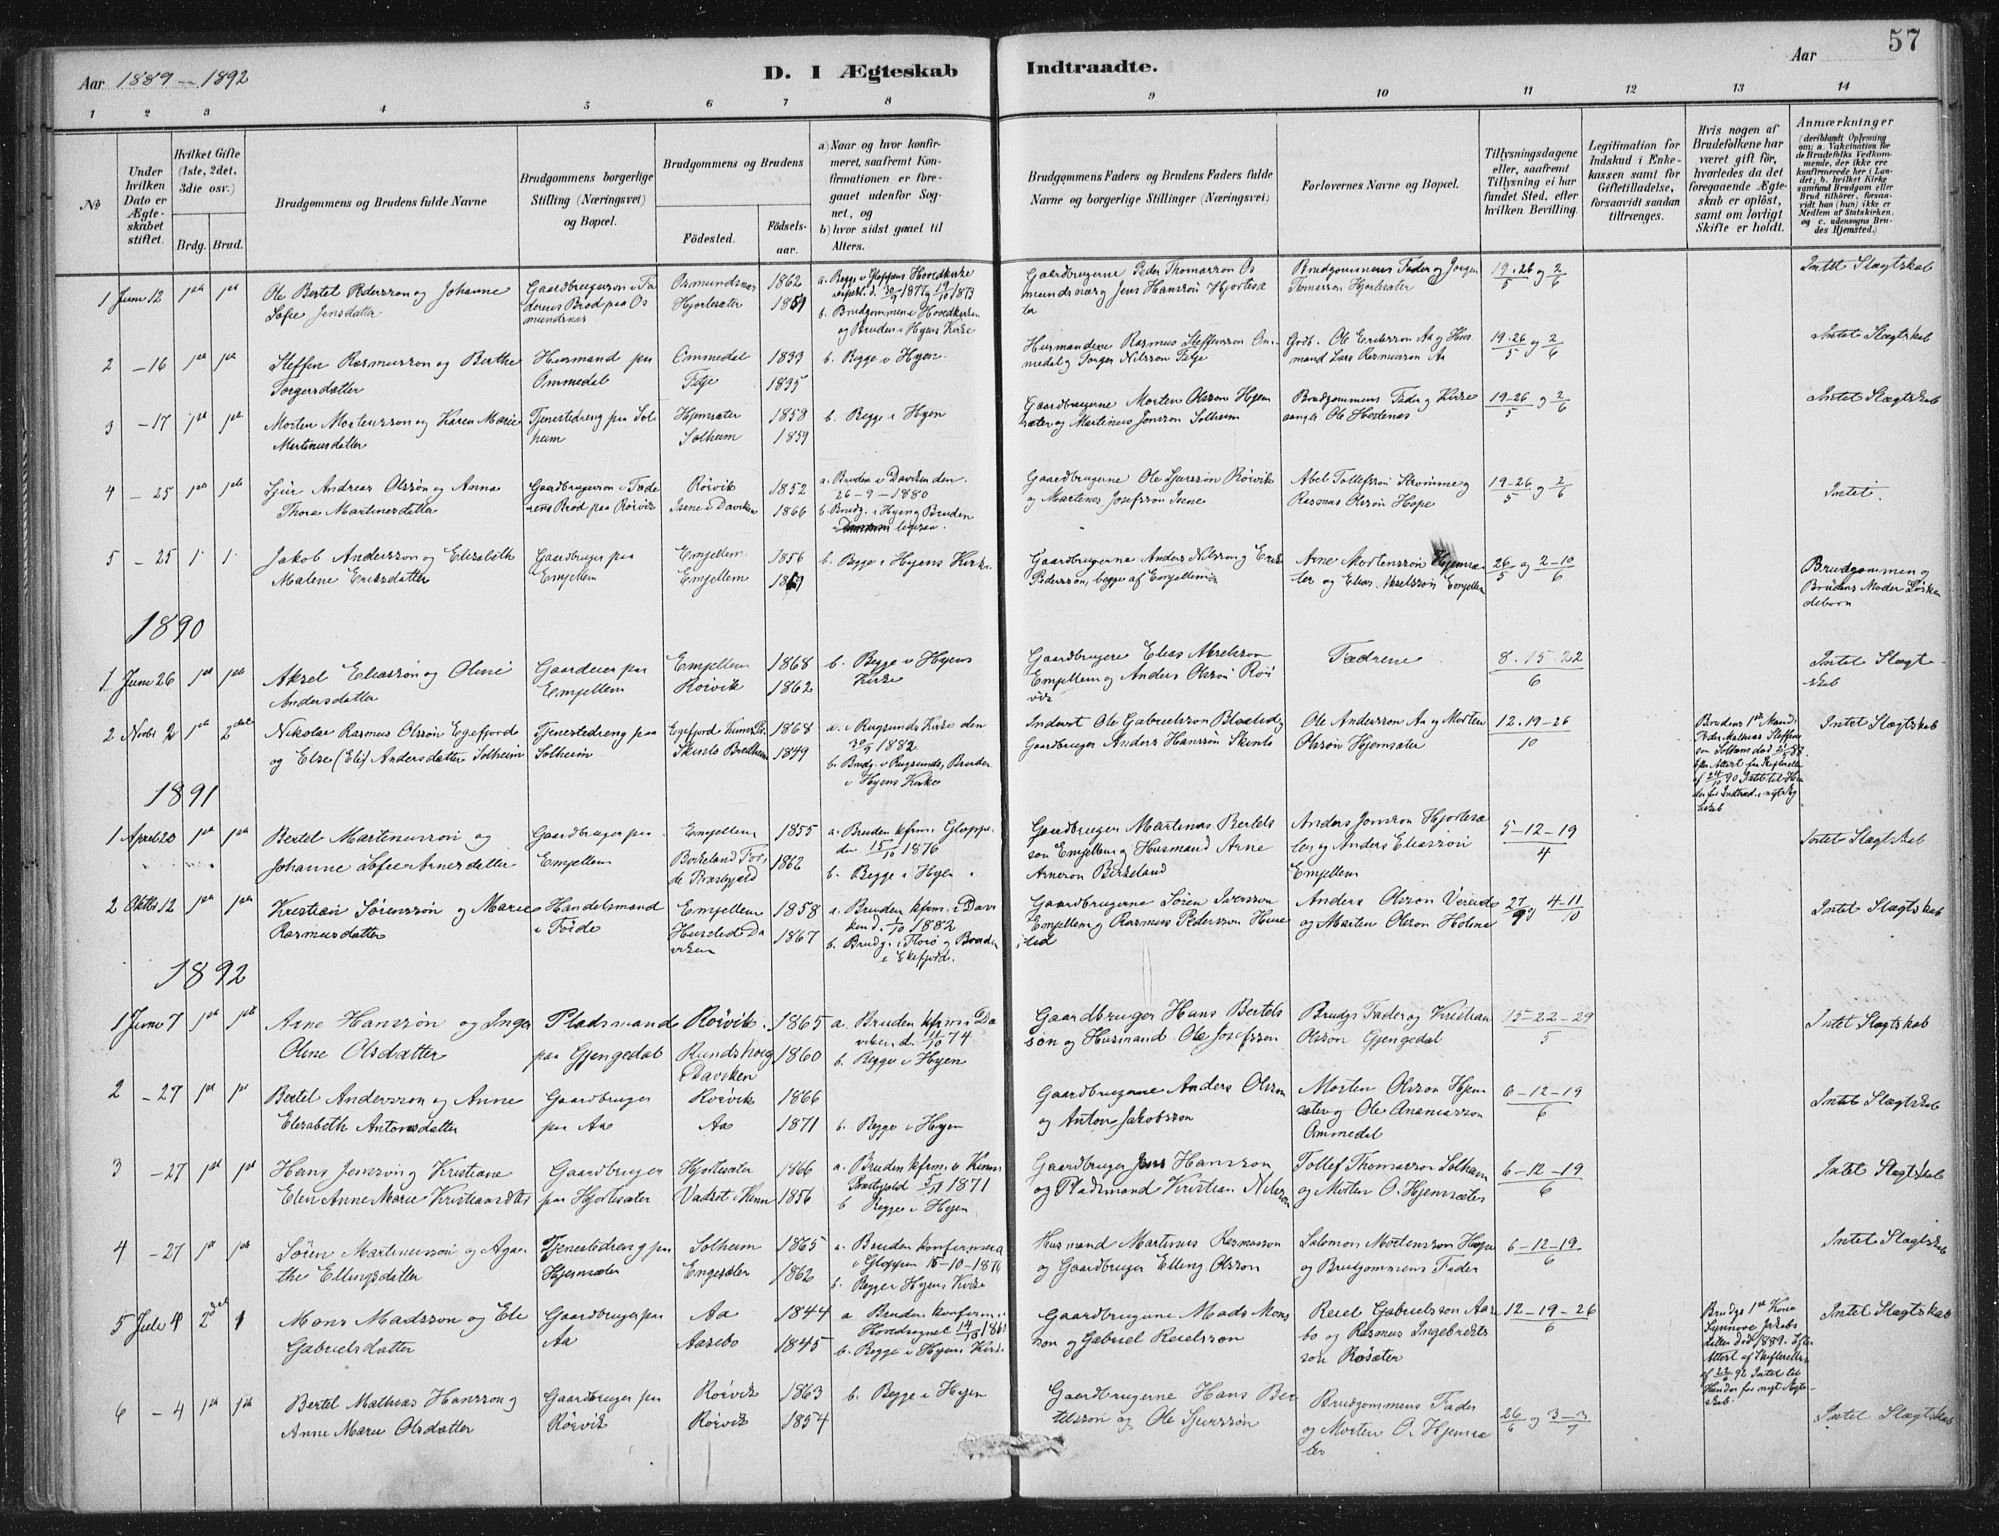 57
Aar 1889 – 1892
D. I Ægteskab Indtraadte.
Aar
1 2 3 4 5 6 7 8 9 10 11 12 13 14
№
Under hvilken Dato er Ægteskabet stiftet.
Hvilket Gifte (1ste, 2det, 3die osv.)
Brdg. Brud.
Brudgommens og Brudens fulde Navne
Brudgommens borgerlige Stilling (Næringsvei) og Bopæl.
Brudgommens og Brudens
Fødested.
Fødselsaar.
a) Naar og hvor konfirmeret, saafremt Konfirmationen er foregaaet udenfor Sognet, og
b) hvor sidst gaaet til Alters.
Brudgommens Faders og Brudens Faders fulde Navne og borgerlige Stillinger (Næringsvei)
Forlovernes Navne og Bopæl.
Tillysningsdagene eller, saafremt Tillysning ei har fundet Sted, efter hvilken Bevilling.
Legitimation for Indskud i Enkekassen samt for Giftetilladelse, forsaavidt saadan tiltrænges.
Hvis nogen af Brudefolkene har været gift før, hvorledes da det foregaaende Ægteskab er opløst, samt om lovligt Skifte er holdt.
Anmærkninger (deriblandt Oplysning om: a. Vakcination for de Brudefolks Vedkommende, der ikke ere konfirmerede her i Landet; b. hvilket Kirkesamfund Brudgom eller Brud tilhører, forsaavidt han (hun) ikke er Medlem af Statskirken, og c. udensogns Brudes Hjemsted.)
1 Juni 12 1ste 1ste
Ole Bertel Pedersson og Johanne
Sofie Jensdatter
Gaardbrugersøn i Faderens Brød paa Osmundsnes
Osmundsnes 1862
Hjortesæter 1859
a. Begge i Gloppens Hovedkirke
b. Brudgommen i Hovedkirken
og Bruden i Hyens Kirke
Gaardbrugerne Peder Thomasson Osmundsnes og Jens Hanssøn Hjortesæter
Brudgommens Fader og Jørgen
Tomasson Hjortesæter
19.26/5 og 2/6
Intet Slægtskab
2 – 16 1ste 1ste
Steffen Rasmusson og Berthe
Torgersdatter
Husmand paa
Ommedal
Ommedal 1833
Fetje 1835
b. Begge i Hyen
Husmændene Rasmus Steffensson Ommedal og Torger Nilsson Fetje
Gdb. Ole Eriksson Aa og Husmand Lars Rasmusson Aa
19.26/5 og 2/6
Intet Slægtskab
3 – 17 1ste 1ste
Morten Mortensson og Karen Marie
Martinusdatter
Tjenestedreng paa Solheim
Hjemsæter 1858
Solheim 1859
b. Begge i Hyen
Gaardbrugerne Morten Olsson Hjemsæter og Martinus Jonsson Solheim
Brudgommens Fader og Kirkesanger Ole Hestenes
19–26/5 og 2/6
Intet Slægtskab
4 – 25 1ste 1ste
Sjur Andreas Olsson og Anna
Thora Martinesdatter
Gaardbrugersøn i Faderens Brød paa Rørvik
Rørvik 1852
Isene i Daviken 1866
a. Bruden i Daviken den
26–9–1880
b. Brudg. i Hyen og Bruden
ligesaa.
Gaardbrugerne Ole Sjursson Rørvik
og Martines Josefsson Isene
Abel Tollefsson Strømme og
Rasmus Olsson Hope
19–26/5 og 2/6
Intet.
5 – 25 1. 1.
Jakob Andersson og Elisabeth
Malene Eriksdatter
Gaardbruger paa
Emjellem
Emjellem 1856
Emjellem
b. Begge i Hyens Kirke
Gaardbrugerne Anders Nilsson og Erik
Pedersson, begge af Emjellem
Arne Mortensson Hjemsæter og Elias Akselsson Emjellem
26/5 og 2–10/6
Brudgommen og
Brudens Moder Søskendebørn
1890
1 Juni 26 1ste 1ste
Aksel Eliassøn og Oline
Andersdatter
Gaardeier paa
Emjellem
Emjellem 1868
Rørvik 1862
b. Begge i Hyens
Kirke
Gaardbrugere Elias Akselsson
Emjellem og Anders Olsson Rørvik
Fædrene
8.15.22/6
Intet Slægtskab
2 Novbr 2 1ste 2det
Nikolai Rasmus Olsson Egefjord
og Else (Eli) Andersdatter Solheim
Tjenestedreng paa
Solheim
Egefjord Kinns P. 1868
Skinlo Bredheim 1849
a. i Rugsunds Kirke den
30/9 1882
b. Brudg. i Rugsund, Bruden
i Hyens Kirke
Inderst Ole Gabrielsson
Gaardbruger Anders Hansson Skinlo
Ole Andersson Aa og Morten
Olsson Hjemsæter
12.19–26/10
Brudens 1ste Mand,
Peder Mathias Steffensson Solheim død
Intet Slægtskab
1891
1 April 20 1ste 1ste
Bertel Martinusson og
Johanne Sofie Arnesdatter
Gaardbruger paa
Emjellem
Emjellem 1855
Birkeland Førde Præstegjeld 1862
a. Bruden kfrm. i Gloppen
den 15/10 1876
b. Begge i Hyen
Gaardbruger Martinus Bertelsson Emjellem og Husmand Arne
Arneson Birkeland
Anders Jonsson Hjortesæter og Anders Eliassøn
Emjellem
5–12–19/4
Intet Slægtskab
2 Oktbr 12 1ste 1ste
Kristian Sørenssøn og Marie
Rasmusdatter
Handelsmand
i Førde
Emjellem 1858
Huseled Daviken 1867
a. Bruden kfrm. i Daviken d. 1/10 1882
b. Brudg. i Florø og Bruden
i Ekefjord.
Gaardbrugerne Søren Iversson
Emjellem og Rasmus Pedersson
Anders Olsson
og Morten Olsson Holme
27/9 4–11/10
Intet Slægtskab
1892
1 Juni 7 1ste 1ste
Arne Hanssøn og Inger
Oline Olsdatter
Pladsmand
paa Gjengedal
Rørvik. 1865
i Daviken 1860
a. Bruden kfrm. i Daviken d. 11/10 74
b. Begge i Hyen
Gaardbruger Hans Bertelssøn og Husmand Ole Josefsson
Brudgs Fader og Kristian
Olsson Gjengedal
15–22–29/5
Intet Slægtskab
2 – 27 1ste 1ste
Bertel Andersson og Anne
Elisabeth Antonsdatter
Gaardbruger
paa Aa
Rørvik 1866
Aa 1871
b. Begge i Hyen
Gaardbrugerne Anders Olsson
og Anton Jakobsson
Morten Olsson Hjemsæter og Ole Ananiasson
Ommedal
6–12–19/6
Intet Slægtskab
3 – 27 1ste 1ste
Hans Jensson og Kristiane
Elen Anne Marie Kristiansdtr
Gaardbruger
paa Hjortesæter
Hjortesæter 1866
Vadset i Kinn 1856
a. Bruden kfrm. i Kinn
Præstegjeld 1871
b. Begge i Hyen
Gaardbruger Jens Hansson
og Pladsmand Kristian Nilsson
Tollef Thomasson Solheim
og Morten O. Hjemsæter
6–12–19/6
Intet Slægtskab
4 – 27 1ste 1ste
Søren Martinussøn og Agathe Ellingsdatter
Tjenestedreng paa
Hjemsæter
Solheim 1865
Engesæter 1862
a. Bruden konfirmera
i Gloppen 15–10–1876
b. Begge i Hyens Kirke
Husmand Martinus Rasmusson
og Gaardbruger Elling Olsson
Salomon Mortensson Hope
og Brudgommens Fader
6–12–19/6
Intet Slægtskab
5 Juli 4 2det 1
Mons Madsson og Eli
Gabrielsdatter
Gaardbruger paa
Aa
Aa 1844
Aasebø 1845
a Bruden konfirm. i
Hovdsognet
b. Begge i Hyens Kirke
Gaardbrugerne Mads Monsson og Gabriel Reielsson
Reiel Gabrielsson Aasebø og Rasmus Ingebrektsson Rosæter
12–19–26/6
Brudgs 1ste Kone
Synnøve Jakobsdatter død 1889. Efter
Attest af Skifteretten
Intet Slægtskab
6 – 4 1ste 1ste
Bertel Mathias Hansson og
Anne Marie Olsdatter
Gaardbruger paa
Rørvik
Rørvik 1863
Rørvik 1854
b. Begge i Hyen
Gaardbrugerne Hans Bertelsson og Ole Sjurssøn
Brudgommens Fader
og Morten O. Hjemsæter
26/6 og 3–3/7
Intet Slægtskab